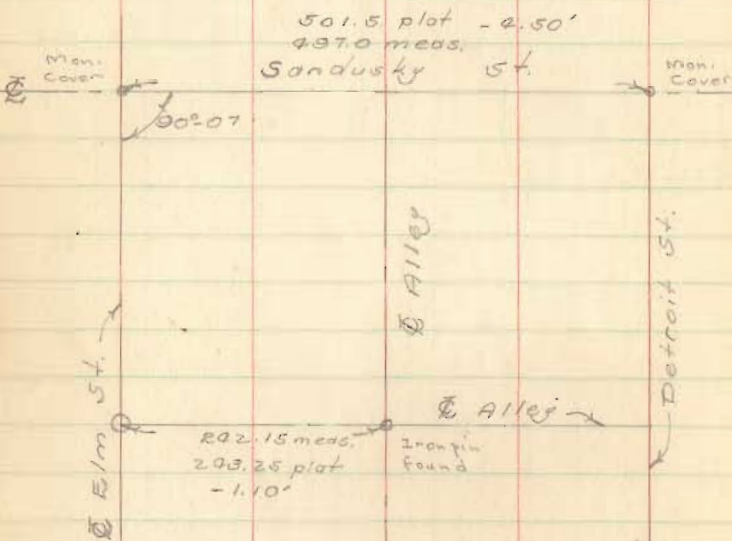 501.5 plat -4.50'
497.0 meas.
Sandusky St.
℄ Mon. Cover
Mon. Cover
90°-07
℄ Alley
Detroit St.
℄ Elm St.
℄ Alley
242.15 meas.
243.25 plat
-1.10'
Iron pin
found